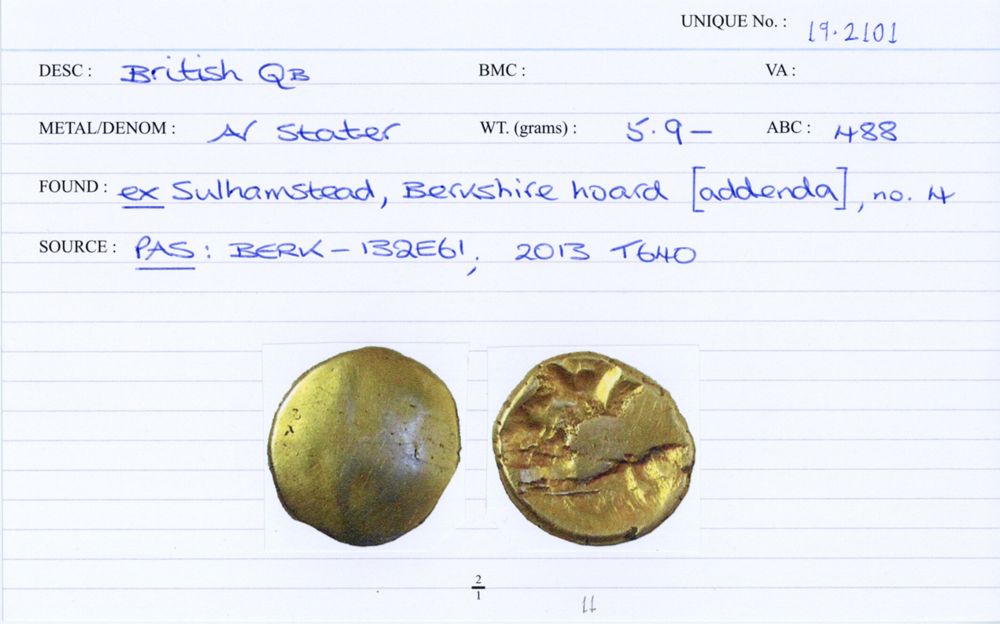 UNIQUE No. : 19.2101
DESC : British QB BMC : VA :
METAL/DENOM : AV Stater WT. (grams) : 5.9– ABC : 488
FOUND : ex Sulhamstead, Berkshire hoard [addenda], no. 4
SOURCE : PAS : BERK – 132E61, 2013 T640
2
1
11